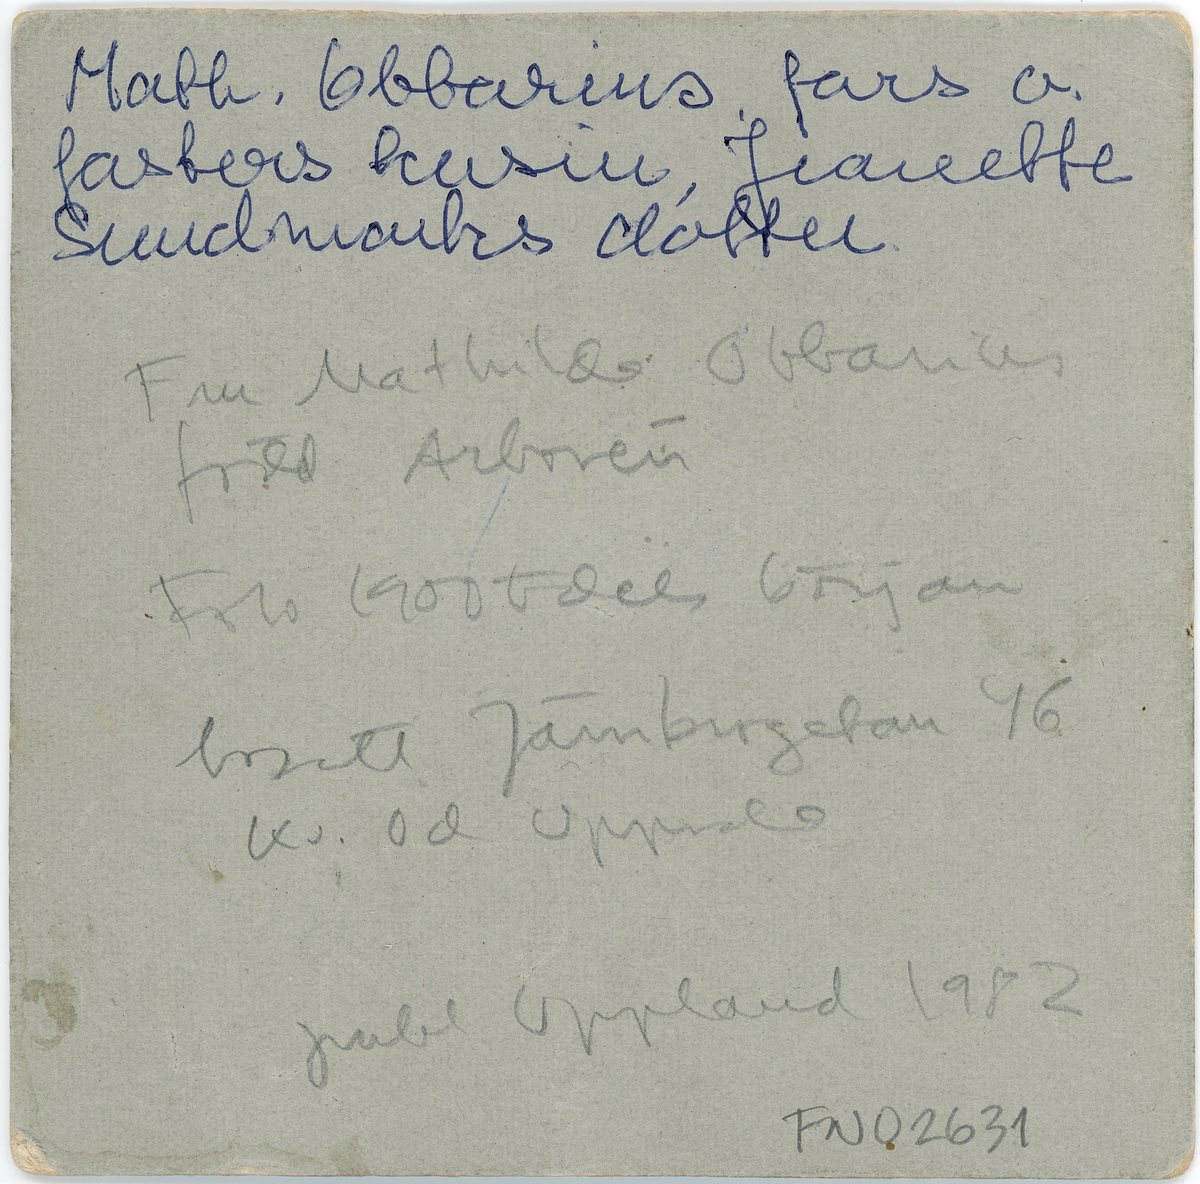 Math. Obbarius, fars o.
fasters kusin, Jeanette
Sundmarks dotter.
Fru Mathilda Obbarius
född Arborén
Foto 1900tdels början
bosatt Järnbrogatan 46
kv. Od Uppsala
publ Uppland 1982
FN02631